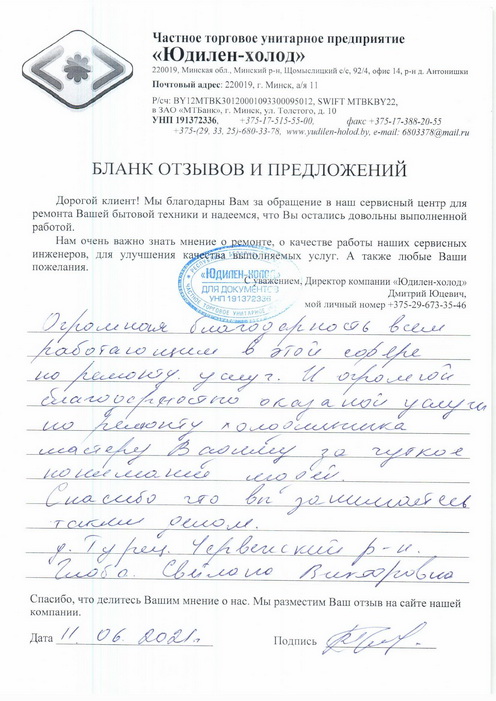 Частное торговое унитарное предприятие
«Юдилен-холод»
220019, Минская обл., Минский р-н, Щомыслицкий с/с, 92/4, офис 14, р-н д. Антонишки
Почтовый адрес: 220019, г. Минск, а/я 11
Р/сч: BY12MTBK30120001093300095012, SWIFT MTBKBY22,
в ЗАО «МТБанк», г. Минск, ул. Толстого, д. 10
УНП 191372336, +375-17-515-55-00, факс +375-17-388-20-55
+375-(29, 33, 25)-680-33-78, www.yudilen-holod.by, e-mail: 6803378@mail.ru
БЛАНК ОТЗЫВОВ И ПРЕДЛОЖЕНИЙ
Дорогой клиент! Мы благодарны Вам за обращение в наш сервисный центр для
ремонта Вашей бытовой техники и надеемся, что Вы остались довольны выполненной
работой.
Нам очень важно знать мнение о ремонте, о качестве работы наших сервисных
инженеров, для улучшения качества выполняемых услуг. А также любые Ваши
пожелания.
«ЮДИЛЕН-ХОЛОД»
ДЛЯ ДОКУМЕНТОВ
УНП 191372336
С уважением, Директор компании «Юдилен-холод»
Дмитрий Юцевич,
мой личный номер +375-29-673-35-46
Огромная благодарность всем
работающим в этой сфере
по ремонту услуг. И огромной
благодарностью оказаной услуги
по ремонту холодильника
мастеру Вадиму за чуткое
понимание людей.
Спасибо что вы занимаетесь
таким делом.
д. Турец Червенский р-н.
Глоба Светлана Викторовна
Спасибо, что делитесь Вашим мнение о нас. Мы разместим Ваш отзыв на сайте нашей
компании.
Дата 11. 06. 2021г. Подпись